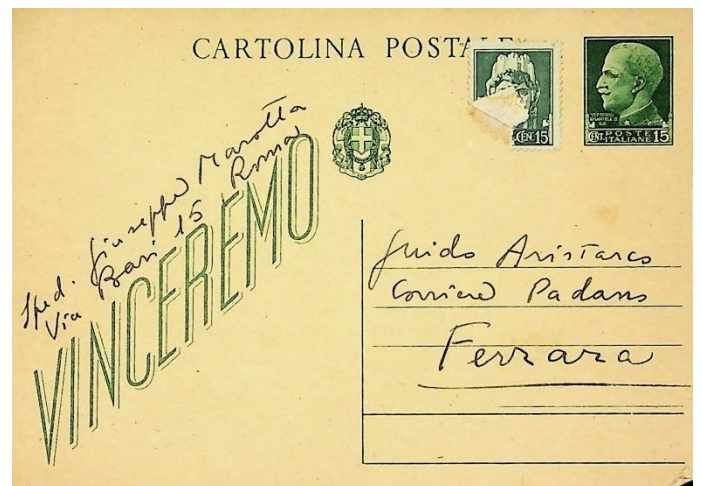 CARTOLINA POSTALE
CEN 15
VITTORIO
EMANUELE III
CENT. POSTE ITALIANE 15
Sped. Giuseppe Marotta
Via Bari 15 Roma
VINCEREMO
Guido Aristarco
Corriere Padano
Ferrara